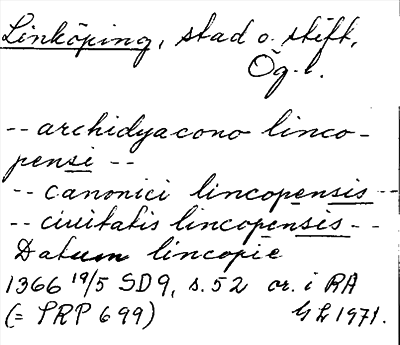 Linköping, stad o. stift,
Ög. l.
-- archidyacono linco-
pensi --
-- canonici lincopensis --
-- ciuitatis lincopensis --
Datum lincopie
1366 19/5 SD9, s. 52 or. i RA
(= PRP 699) G L 1971.